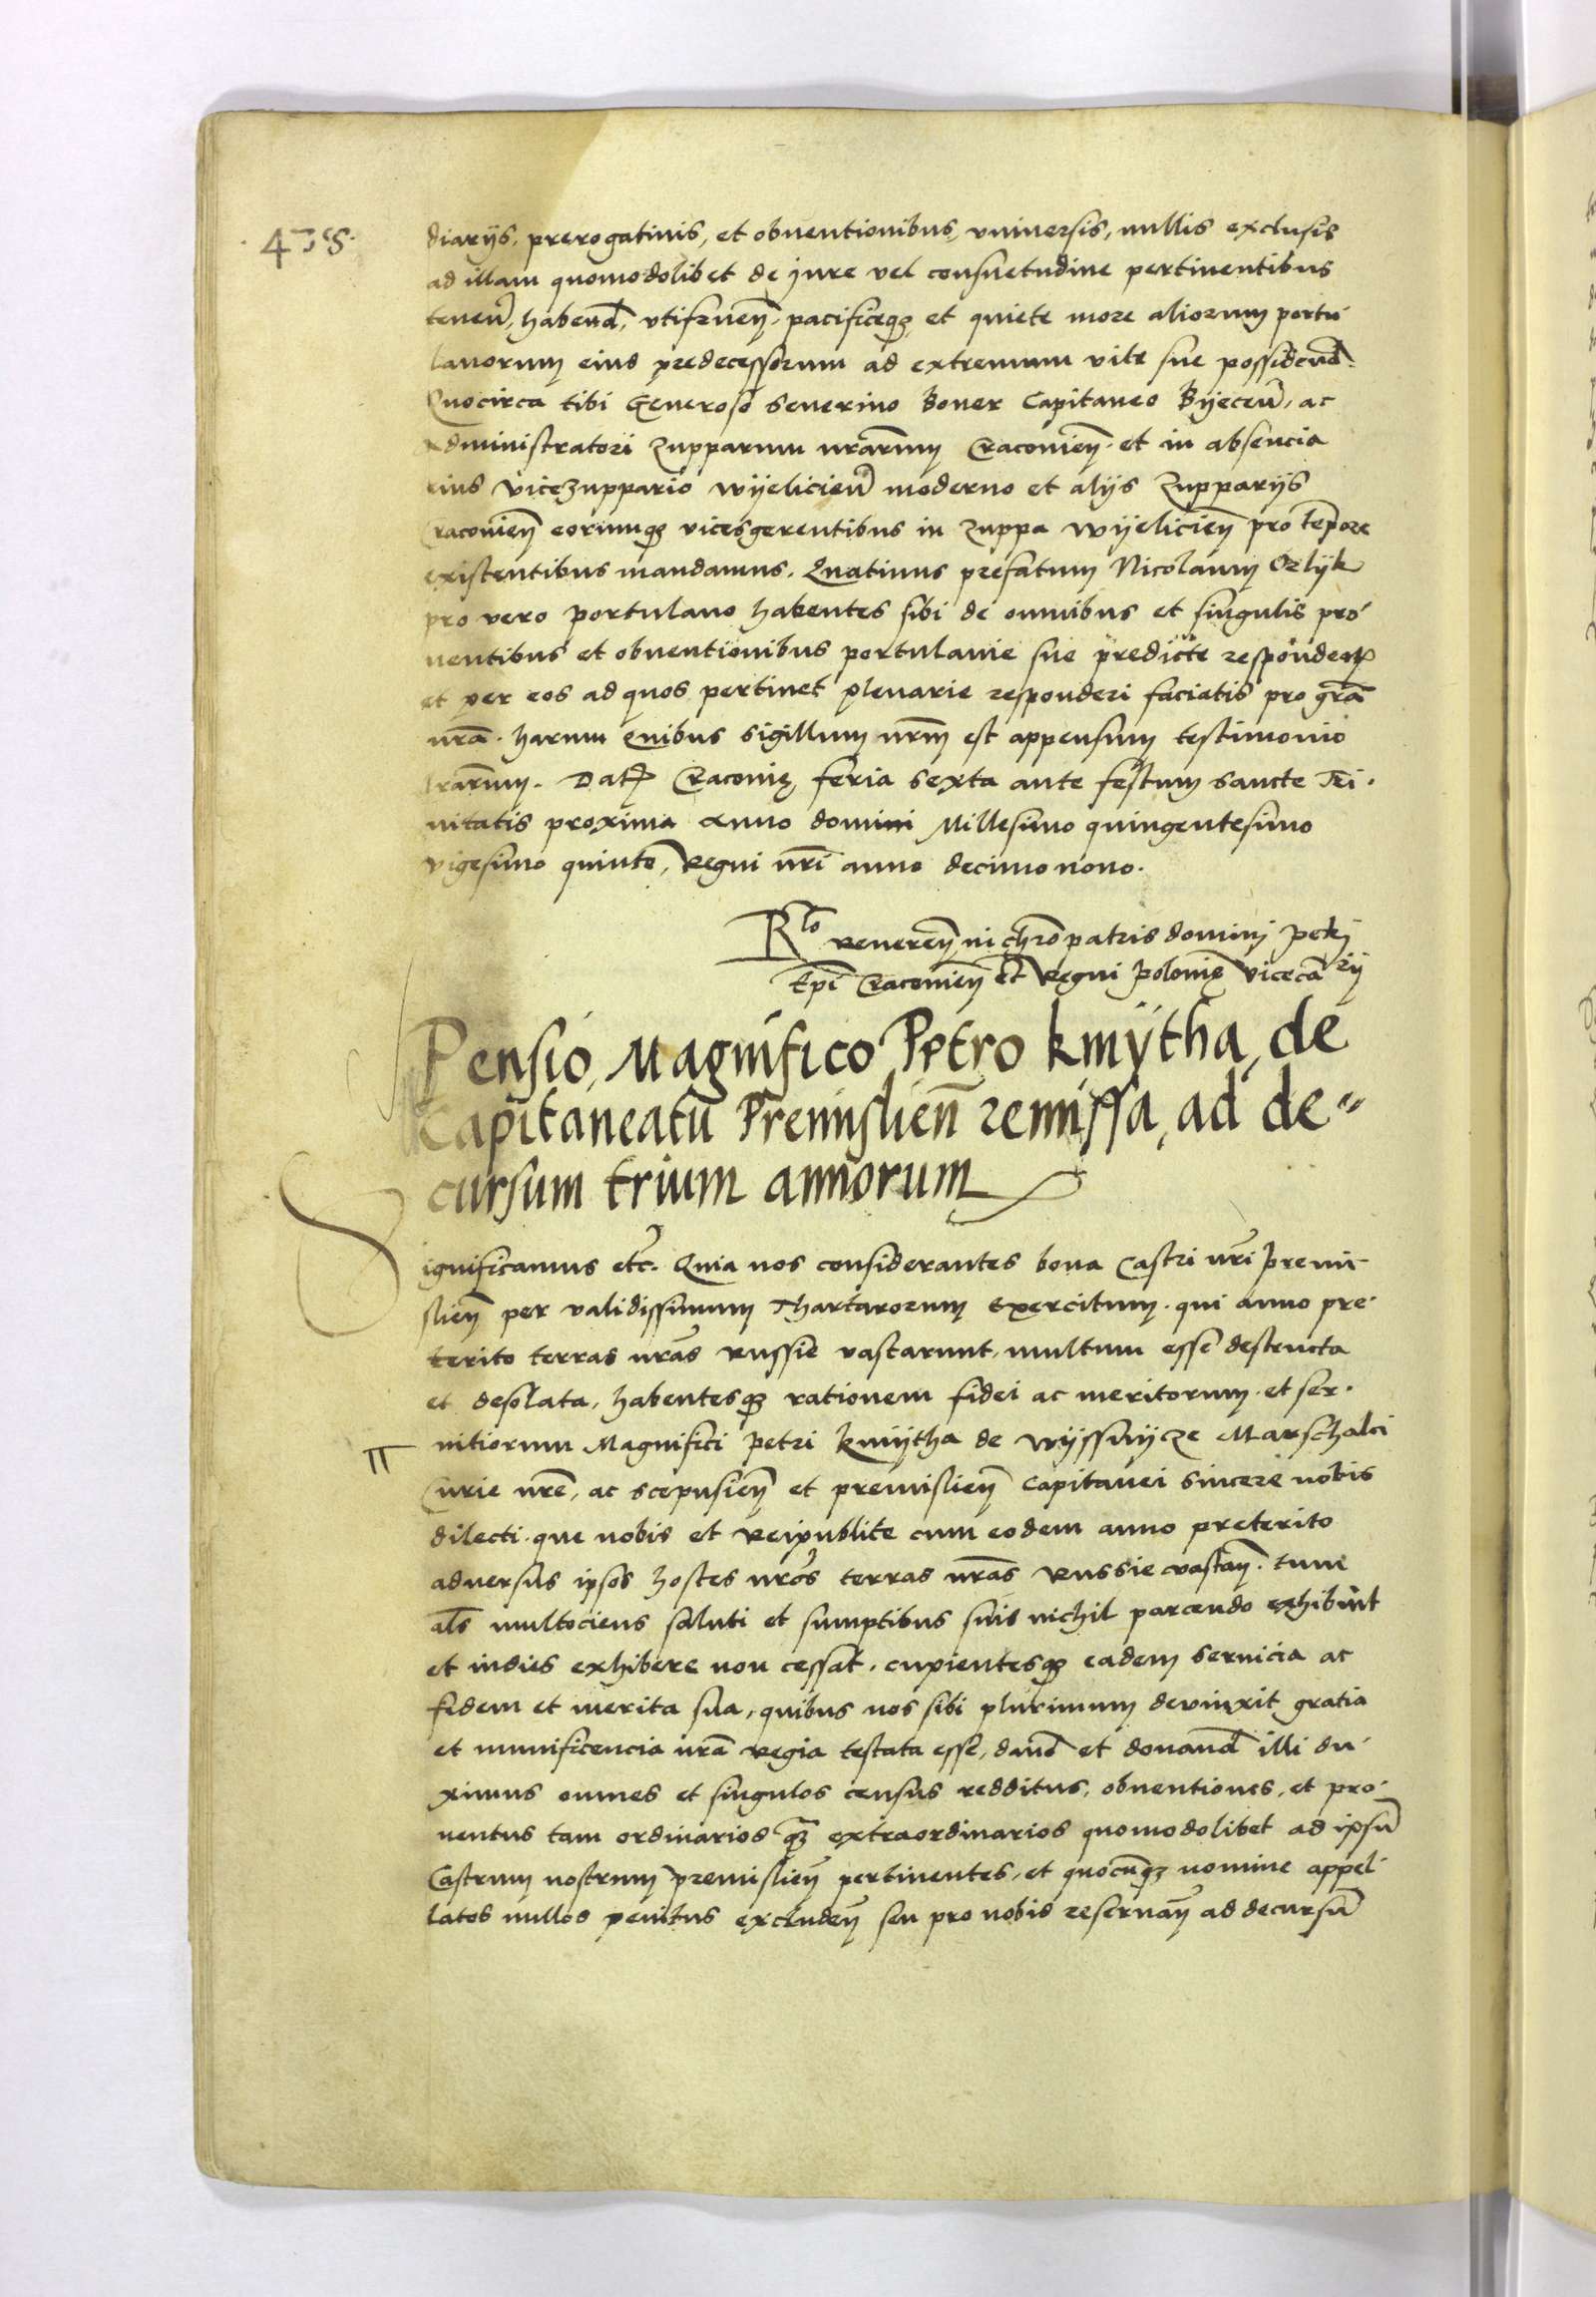 438
diarijs, prerogativis, et obventionibus, universis, nullis exclusis
ad illam quomodolibet de jure vel consuetudine pertinentibus
teneñ, habend, utifrueñ, pacificeqꝫ et quiete more aliorum portu
lanorum eius predecessorum ad extremum vite sue possidend.
Quocirca tibi Generoso Severino Boner Capitaneo Bijeceñ, ac
administratori Zupparum nrarum Cracovieñ et in absencia
eius vicezuppario Wijelicieñ moderno et alijs Zupparijs
Cracovieñ eorumqꝫ vicesgerentibus in Zuppa Wijelicieñ pro tempore
existentibus mandamus. Quatinus prefatum Nicolaum Orlijk
pro vero portulano habentes sibi de omnibus et singulis pro
ventibus et obventionibus portulanie sue predicte respondeatis
et per eos ad quos pertinet plenarie responderi faciatis pro gra
nra. harum quibus sigillum nrm est appensum testimonio
lrarum. Dat Cracovię feria sexta ante festum Sancte Tri.
nitatis proxima Anno domini Millesimo quingentesimo
vigesimo quinto, Regni nri anno decimo nono.
Rlo Revereñ in chro patris domini Petri
Epi Cracovieñ et Regni Polonię vicecan rij
Pensio, Magnifico Petro kmÿtha, de
Capitaneatu Premislieñ remissa, ad de=
cursum trium annorum
Significamus etc. Quia nos considerantes bona Castri nri Premi
slieñ per validissimum Thartarorum Exercitum. qui anno pre
terito terras nras Russie vastarunt, multum esse destructa
et desolata, habentesqꝫ rationem fidei ac meritorum et ser.
vitiorum Magnifici Petri kmijtha de Wijssnijcze Marschalci
Curie nre, ac scepusieñ et premislieñ Capitanei sincere nobis
dilecti. que nobis et Reipublice cum eodem anno preterito
adversus ipsos hostes nros terras nras Russie vastañ. tum
als multociens saluti et sumptibus suis nichil parcendo exhibuit
et indies exhibere non cessat. cupientesqꝫ eadem servicia ac
fidem et merita sua, quibus nos sibi plurimum devinxit gratia
et munificencia nra regia testata esse, dand et donand illi du
ximus omnes et singulos census redditus, obventiones, et pro
ventus tam ordinarios qꝫ extraordinarios quomodolibet ad ipsu
Castrum nostrum premislieñ pertinentes, et quocunqꝫ nomine appel
latos nullos penitus excludeñ seu pro nobis reservañ ad decursu